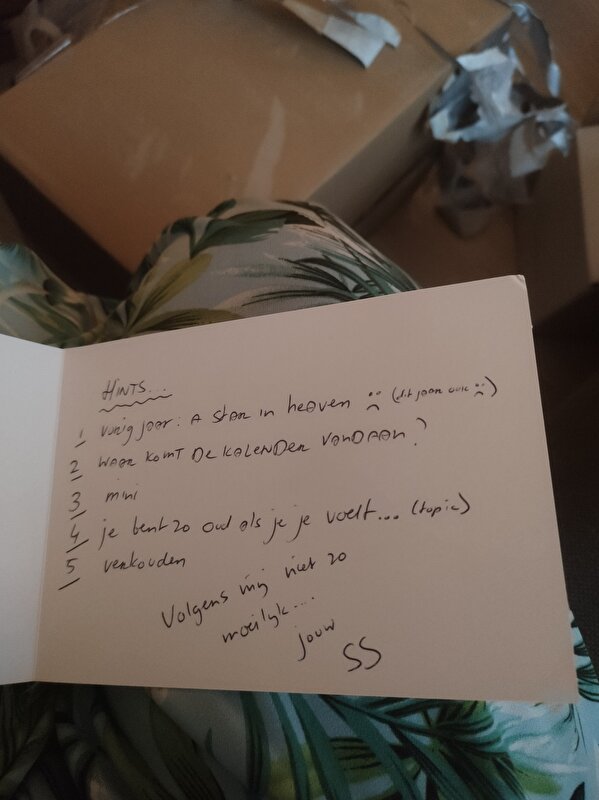 HINTS...
1 vorig jaar: A star in heaven :( (dit jaar ook :()
2 waar komt de kalender vandaan?
3 mini
4 je bent zo oud als je je voelt... (topic)
5 verkouden
Volgens mij niet zo
moeilijk...
jouw
SS